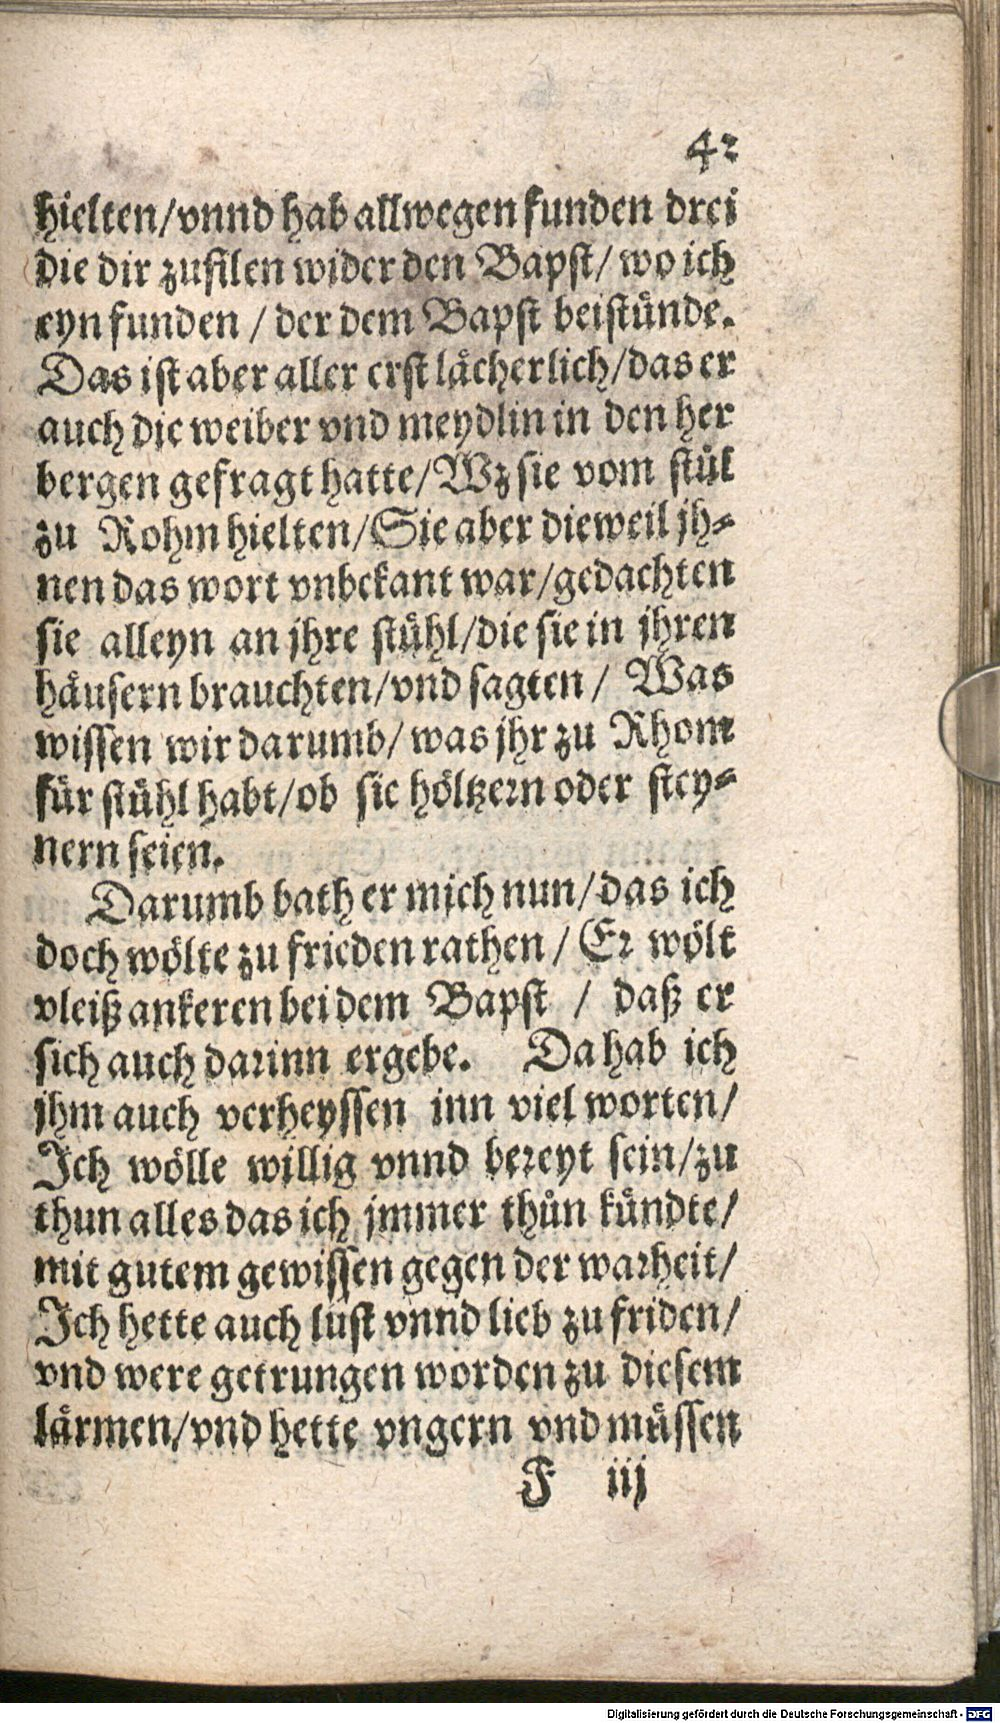 42
hielten/vnnd hab allwegen funden drei
die dir zufilen wider den Bapst/ wo ich
eyn funden / der dem Bapst beistünde.
Das ist aber aller erst lächerlich/das er
auch die weiber vnd meydlin in den her
bergen gefragt hatte/Wz sie vom stůl
zu Rohm hielten/Sie aber dieweil jh-
nen das wort vnbekant war/gedachten
sie alleyn an jhre stühl/die sie in jhren
häusern brauchten/vnd sagten / Was
wissen wir darumb/ was jhr zu Rhom
für stühl habt/ob sie höltzern oder stey-
nern seien.
Darumb bath er mich nun/das ich
doch wölte zu frieden rathen / Er wölt
vleiß ankeren bei dem Bapst / daß er
sich auch darinn ergebe. Da hab ich
jhm auch verheyssen inn viel worten/
Ich wölle willig vnnd bereyt sein/zu
thun alles das ich jmmer thůn kündte/
mit gutem gewissen gegen der warheit/
Ich hette auch lust vnnd lieb zu friden/
vnd were getrungen worden zu diesem
lärmen/vnd hette vngern vnd müssen
F iij
Digitalisierung gefördert durch die Deutsche Forschungsgemeinschaft - DFG